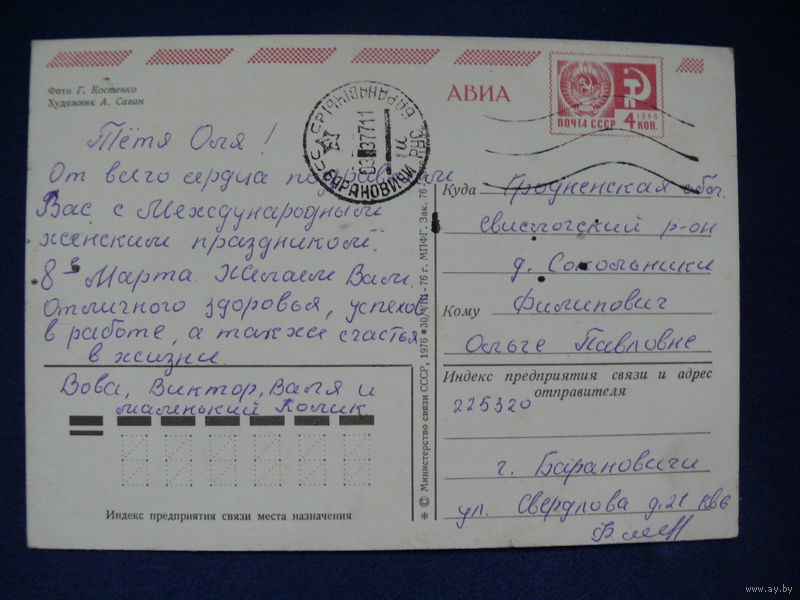 Фото Г. Костенко
Художник А. Савин
АВИА
ПОЧТА СССР
1966
4 КОП.
БАРАНОВИЧИ
Тётя Оля!
От всего сердца поздравляем
Вас с Международным
женским праздником
8е Марта. Желаем Вам
Отличного здоровья, успехов
в работе, а также счастья
в жизни.
Вова, Виктор, Валя и
маленький Комик
Индекс предприятия связи места назначения
* © Министерство связи СССР, 1976 * 30/VIII-76 г. МПФГ. Зак. 76
Куда Гродненская обл.
Свислочский р-он
д. Сокольники
Кому Филипович
Ольге Павловне
Индекс предприятия связи и адрес
отправителя
225320
г. Барановичи
ул. Свердлова д.21 кв6
www.ay.by